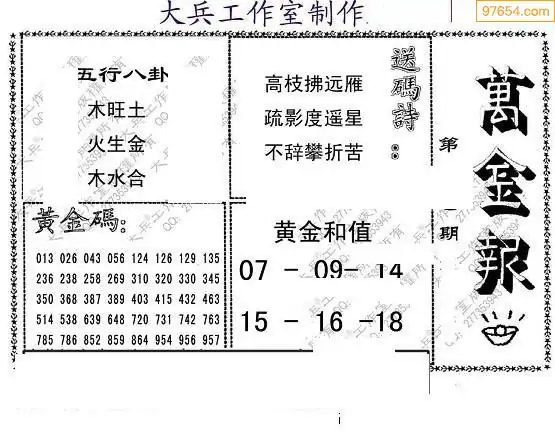 大兵工作室制作
97654.com
五行八卦
木旺土
火生金
木水合
送碼詩:
高枝拂远雁
疏影度遥星
不辞攀折苦
萬金報
第
期
黄金碼:
013 026 043 056 124 126 129 135
236 238 258 269 310 320 330 345
350 368 387 389 403 415 432 463
514 538 639 648 720 731 742 763
785 786 852 859 864 954 956 957
黄金和值
07 - 09- 14
15 - 16 -18
i